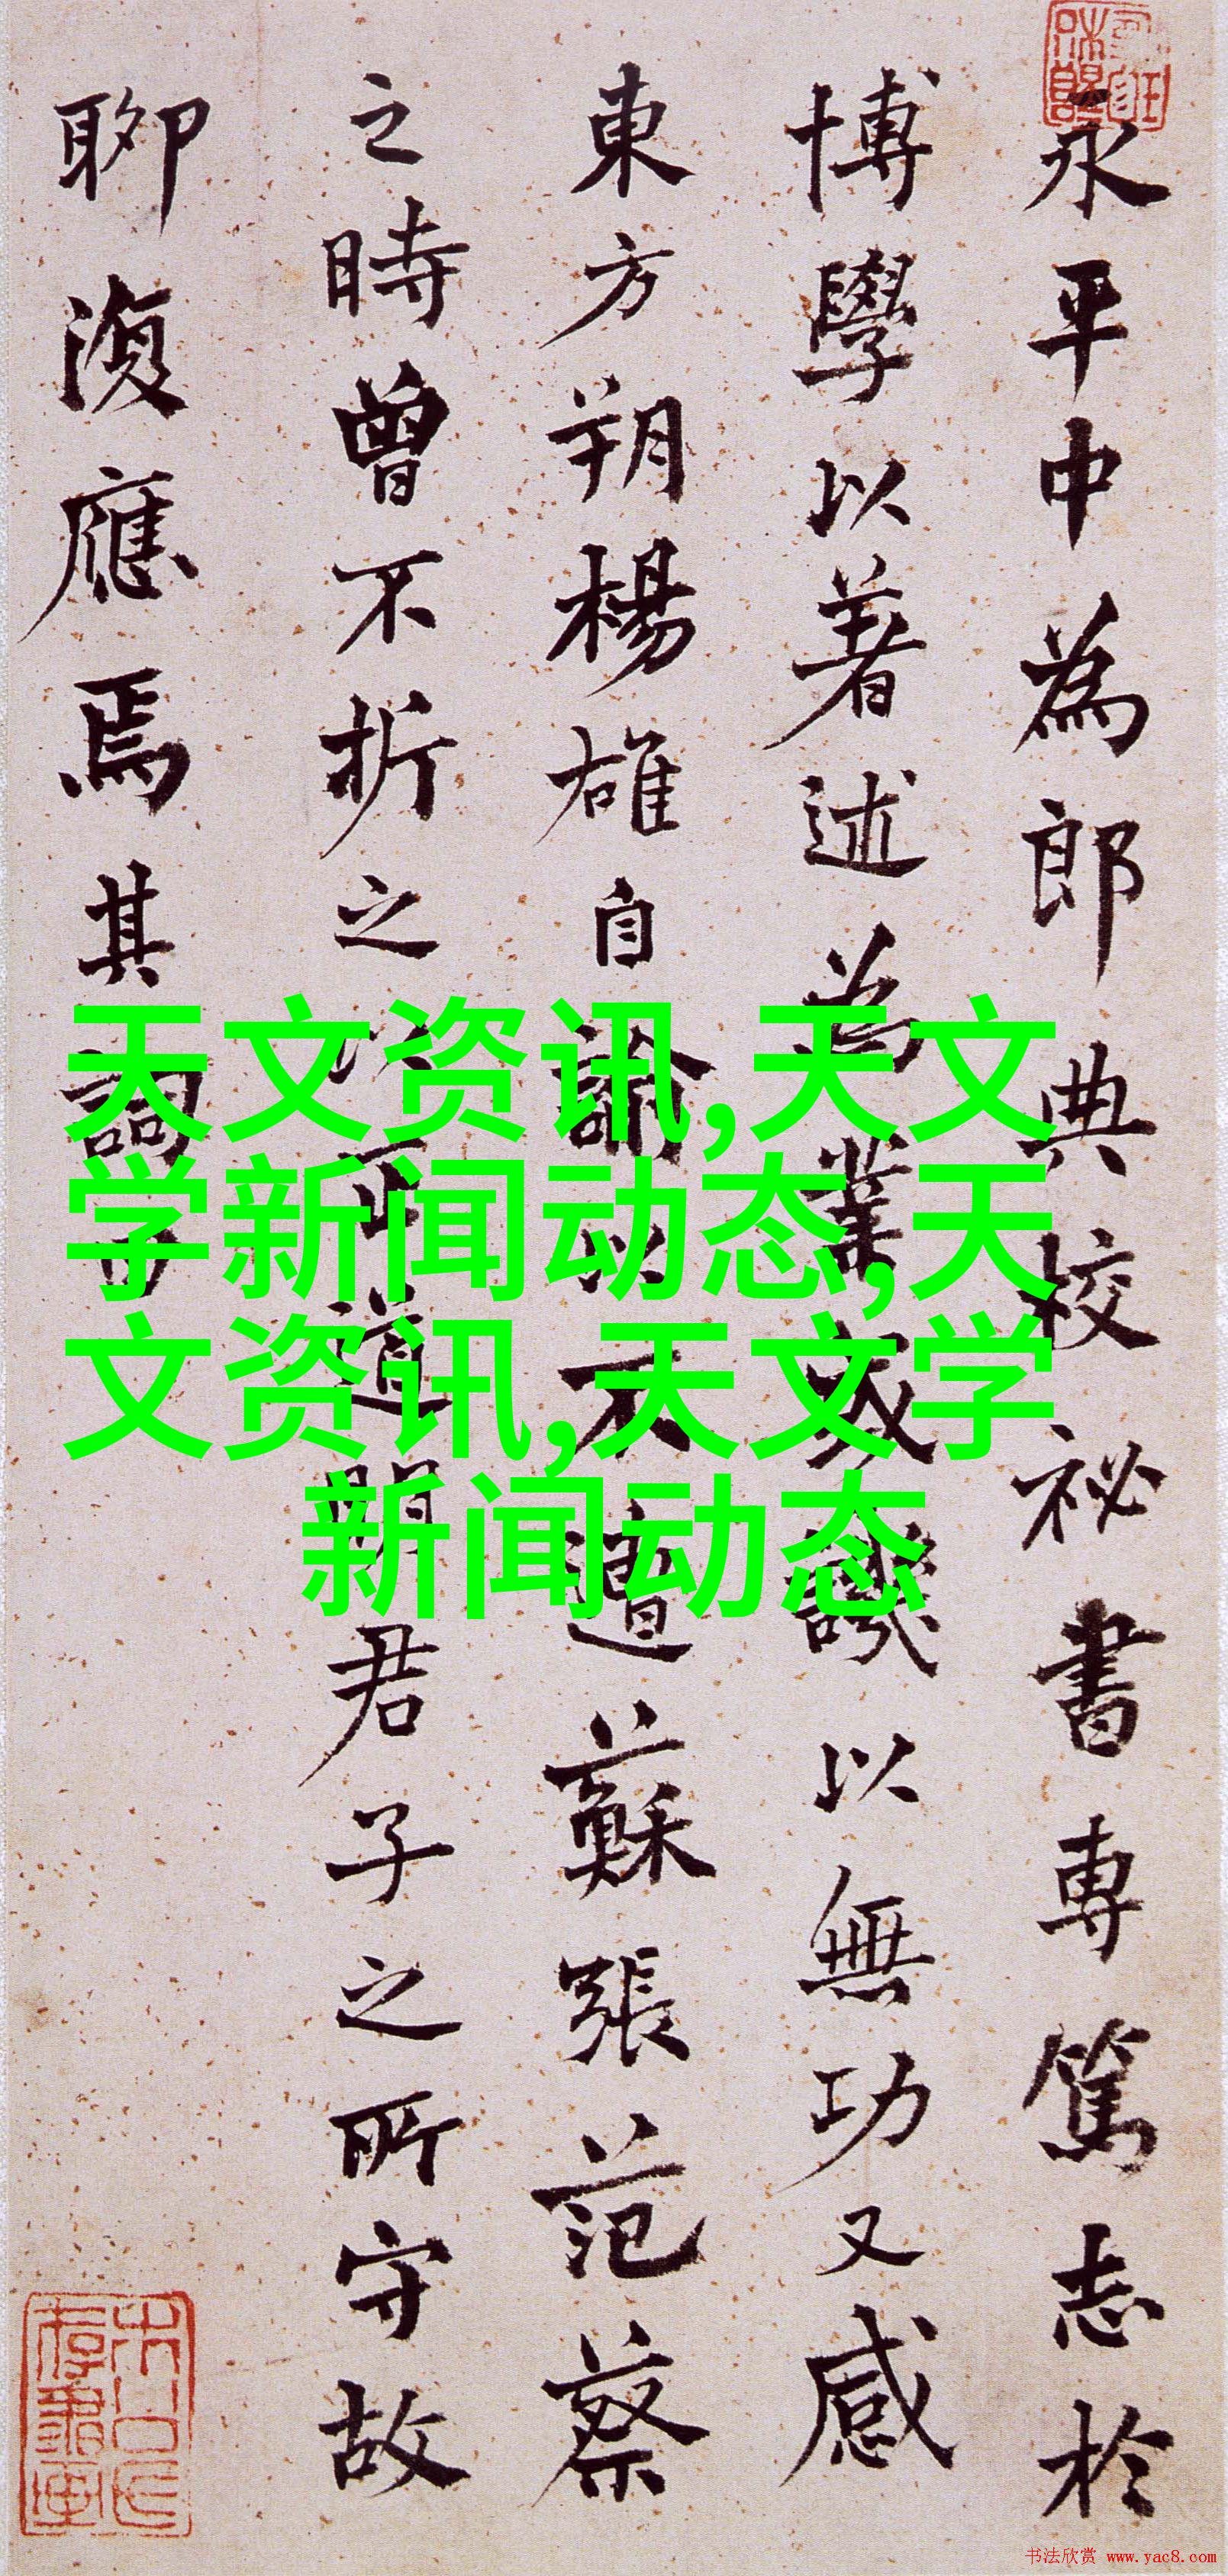 永平中為郎典校祕書專篤志於
博學以著述為業或譏以無功又感
東方朔楊雄自諭以不遭蘇張范蔡
之時曾不折之以正道明君子之所守故
聊復應焉其詞曰
天文资讯,天文
学新闻动态,天
文资讯,天文学
新闻动态
书法欣赏 www.yac8.com